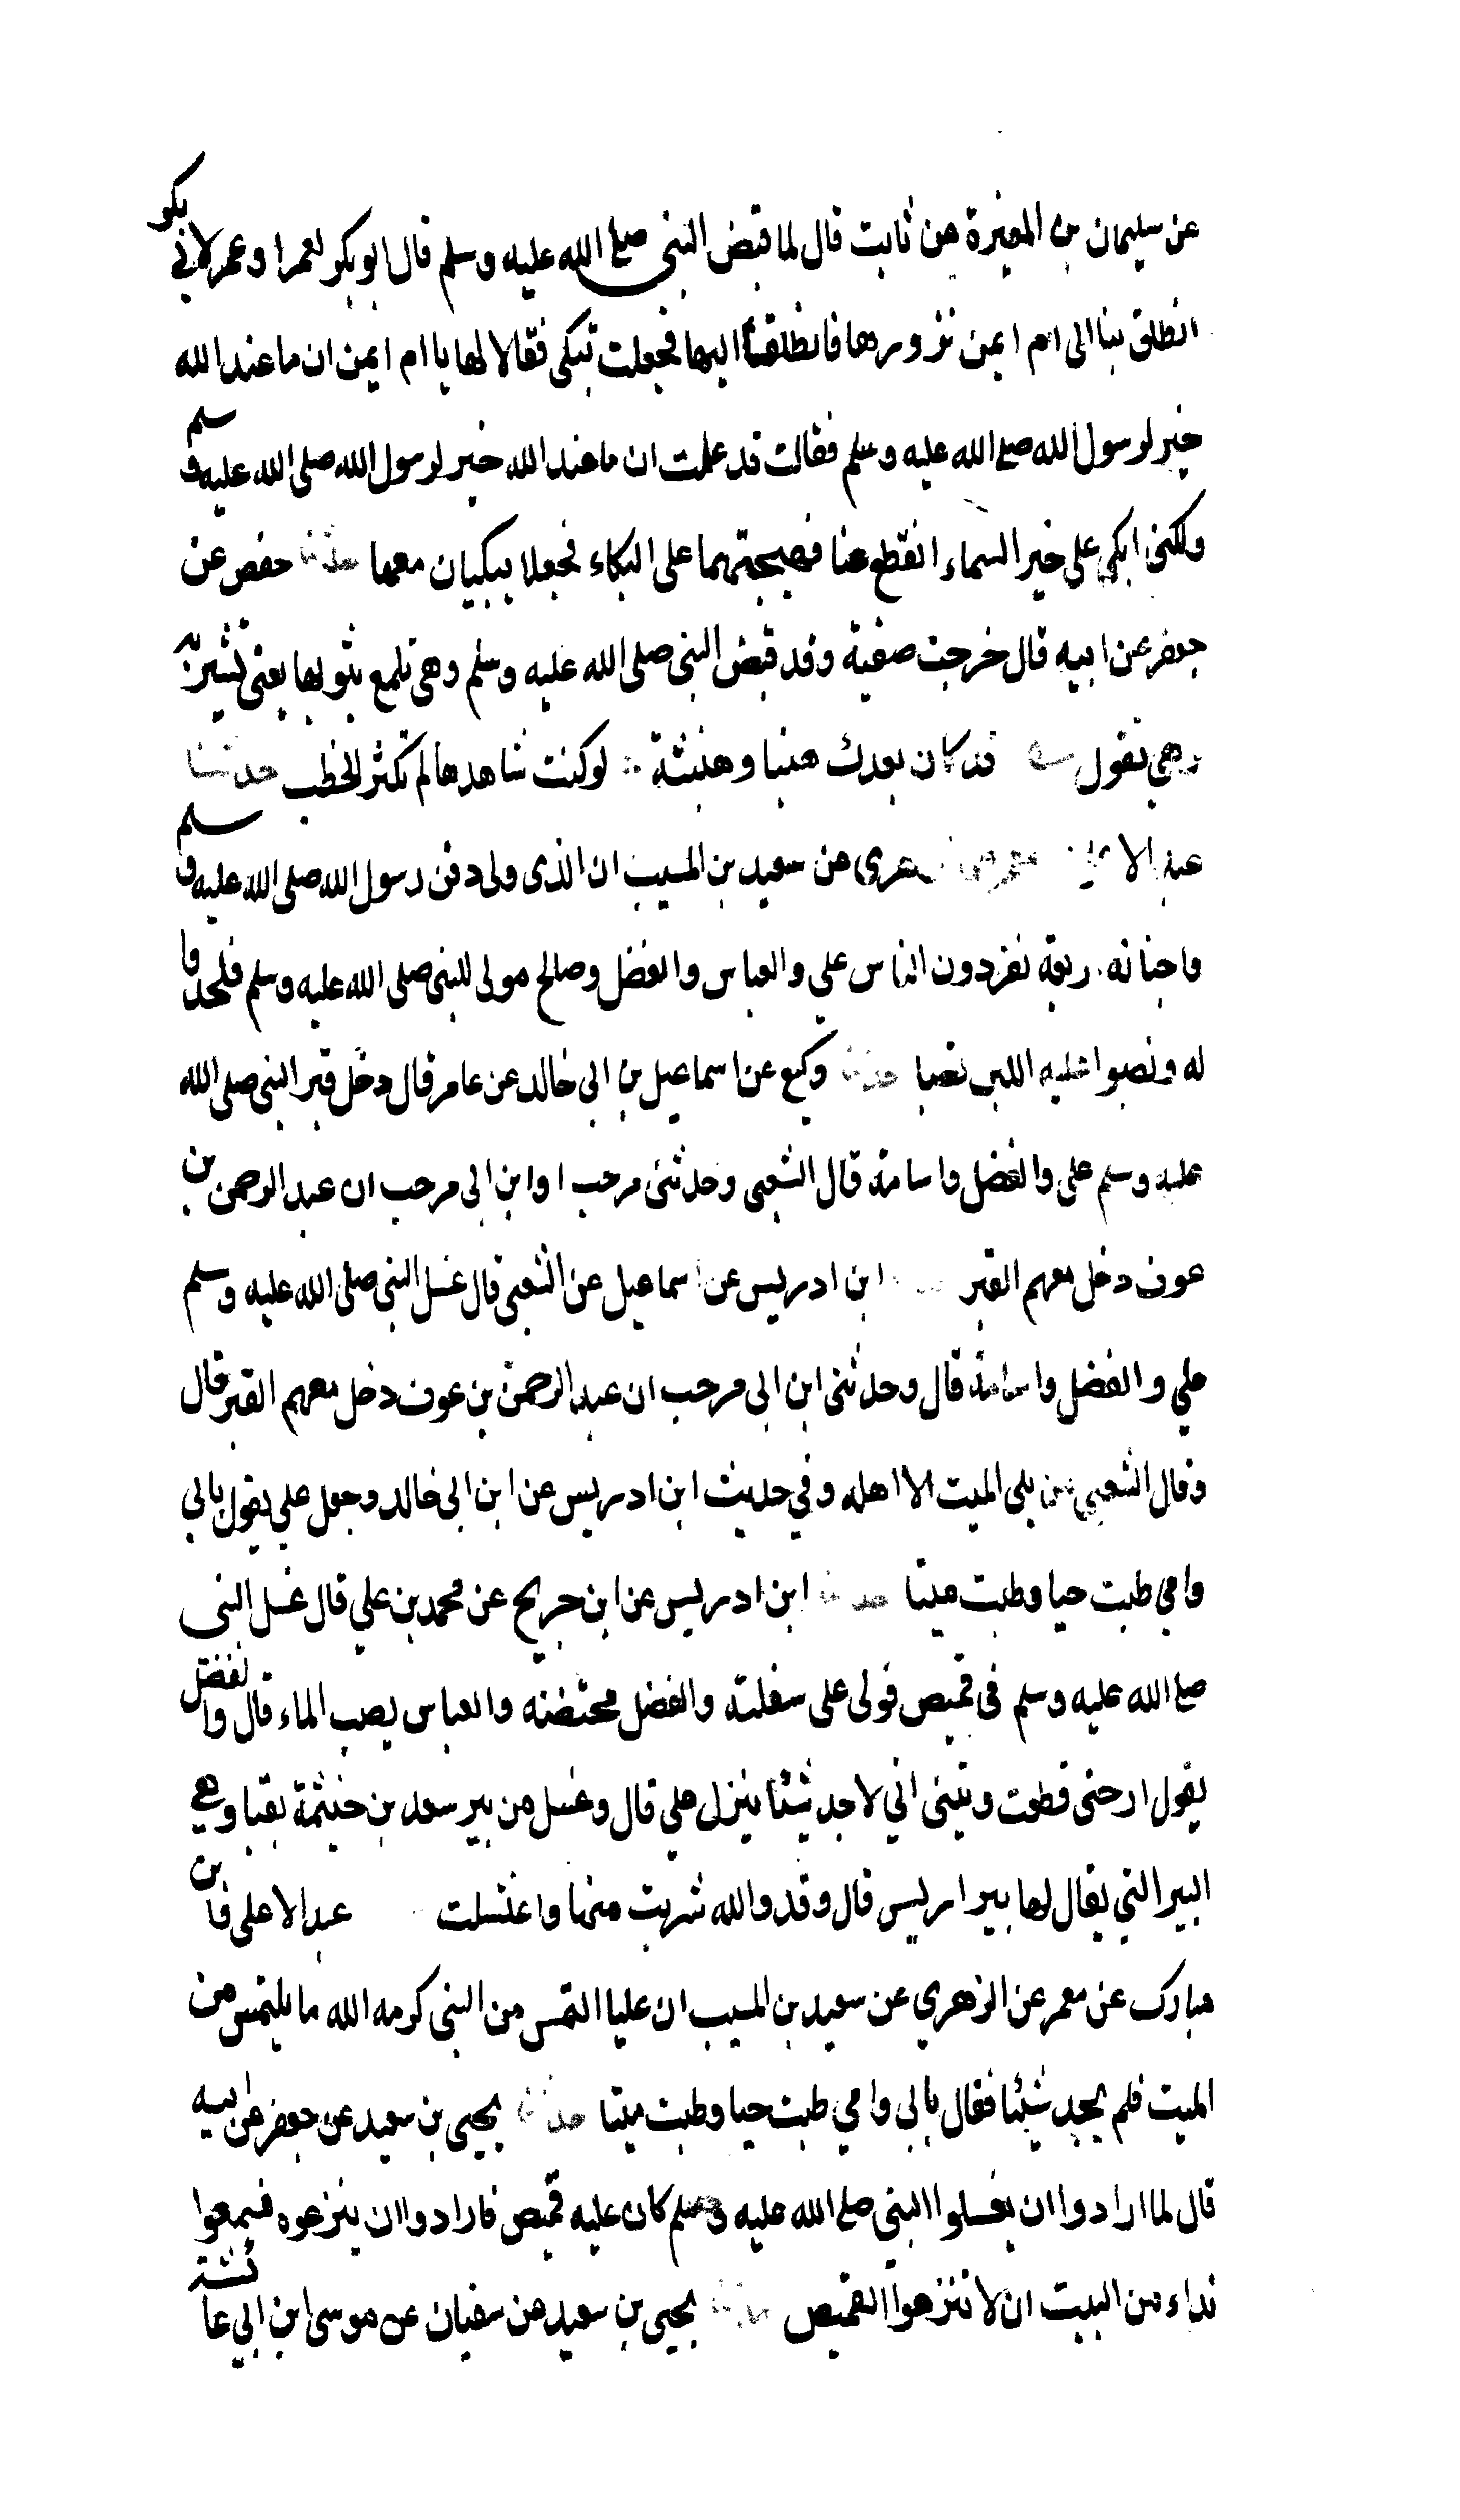 عن سليمان بن المغيرة عن ثابت قال لما قبض النبى صلى الله عليه وسلم قال ابو بكر لعمر او عمر لابى بكر
انطلق بنا الى ام ايمن نزورها فانطلقا اليها فجعلت تبكى فقالا لها يا ام ايمن ان ما عند الله
خير لرسول الله صلى الله عليه وسلم فقالت قد علمت ان ما عند الله خير لرسول الله صلى الله عليه وسلم
ولكنى ابكى على خبر السماء انقطع عنا فهيجتهما على البكاء فجعلا يبكيان معها حدثنا حفص عن
جعفر عن ابيه قال خرجت صفية وقد قبض النبى صلى الله عليه وسلم وهى تلمع بثوبها يعنى تشير به
وهي تقول قد كان بعدك هنبا وهنبثة لو كنت شاهدها لم تكثر الخطب حدثنا
عبد الاعلى عن سعيد بن المسيب ان الذى ولى دفن رسول الله صلى الله عليه وسلم
واجنانه ربعة نفر دون الناس علي والعباس والفضل وصالح مولى للنبى صلى الله عليه وسلم فلحدوا
له ونصبوا عليه اللبن نصبا حدثنا وكيع عن اسماعيل بن ابى خالد عن عامر قال دخل قبر النبى صلى الله
عليه وسلم على والفضل واسامة قال الشعبى وحدثنى مرحب او ابن ابى مرحب ان عبد الرحمن بن
عوف دخل معهم القبر ابن ادريس عن اسماعيل عن الشعبى قال غسل النبى صلى الله عليه وسلم
علي والفضل واسامة قال وحدثنى ابن ابى مرحب ان عبد الرحمن بن عوف دخل معهم القبر قال
وقال الشعبى من يلى الميت الا اهله وفي حديث ابن ادريس عن ابن ابى خالد وجعل علي يقول بابي
وامي طبت حيا وطبت ميتا حدثنا ابن ادريس عن ابن جريح عن محمد بن علي قال غسل النبى
صلى الله عليه وسلم فى قميص فولى على سفلته والفضل محتضنه والعباس يصب الماء قال والفضل
يقول ارحنى قطعت وتينى اني لاجد شيئا ينزل علي قال وغسل من بير سعد بن خيثمة بقبا وهي
البير التي يقال لها بير اريس قال وقد والله شربت منها واغتسلت عبد الاعلى فابن
مبارك عن معمر عن الزهري عن سعيد بن المسيب ان عليا التمس من النبى كرمه الله ما يلتمس من
الميت فلم يجد شيئا فقال بابي وامي طبت حيا وطبت ميتا حدثنا يحيى بن سعيد عن جعفر عن ابيه
قال لما ارادوا ان يغسلوا النبى صلى الله عليه وسلم كان عليه قميص فارادوا ان ينزعوه فسمعوا
نداء من البيت ان لا تنزعوا القميص حدثنا يحيى بن سعيد عن سفيان عن موسى ابن ابي عائشة